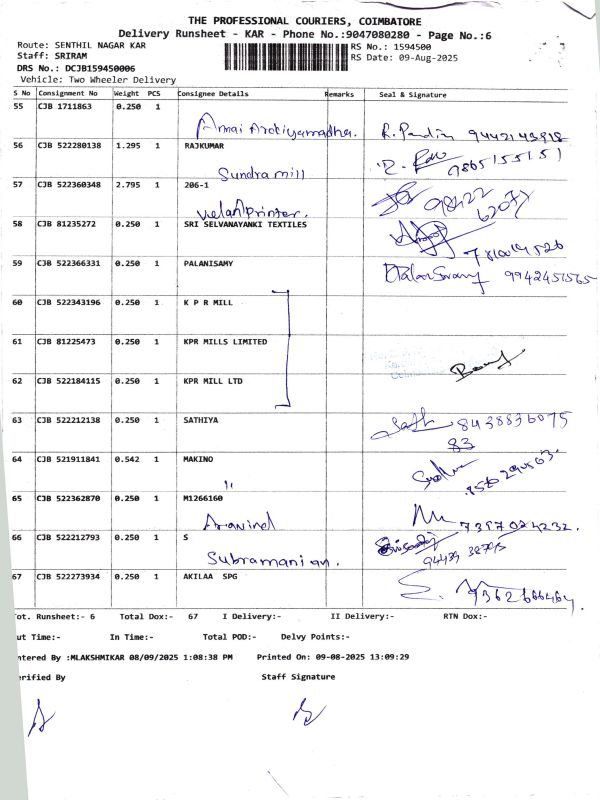 THE PROFESSIONAL COURIERS, COIMBATORE
Delivery Runsheet - KAR - Phone No.:9047080280 - Page No.:6
Route: SENTHIL NAGAR KAR RS No.: 1594500
Staff: SRIRAM RS Date: 09-Aug-2025
DRS No.: DCJB159450006
Vehicle: Two Wheeler Delivery
S No Consignment No Weight PCS Consignee Details Remarks Seal & Signature
55 CJB 1711863 0.250 1
56 CJB 522280138 1.295 1 RAJKUMAR
Sundra mill
57 CJB 522360348 2.795 1 206-1
Velan printer.
58 CJB 81235272 0.250 1 SRI SELVANAYANKI TEXTILES
59 CJB 522366331 0.250 1 PALANISAMY
60 CJB 522343196 0.250 1 K P R MILL
61 CJB 81225473 0.250 1 KPR MILLS LIMITED
62 CJB 522184115 0.250 1 KPR MILL LTD
63 CJB 522212138 0.250 1 SATHIYA Sath 8438836075
83
64 CJB 521911841 0.542 1 MAKINO
"
65 CJB 522362870 0.250 1 M1266160
Aravind
66 CJB 522212793 0.250 1 S
Subramanian.
67 CJB 522273934 0.250 1 AKILAA SPG
ot. Runsheet:- 6 Total Dox:- 67 I Delivery:- II Delivery:- RTN Dox:-
ut Time:- In Time:- Total POD:- Delvy Points:-
ntered By :MLAKSHMIKAR 08/09/2025 1:08:38 PM Printed On: 09-08-2025 13:09:29
erified By Staff Signature